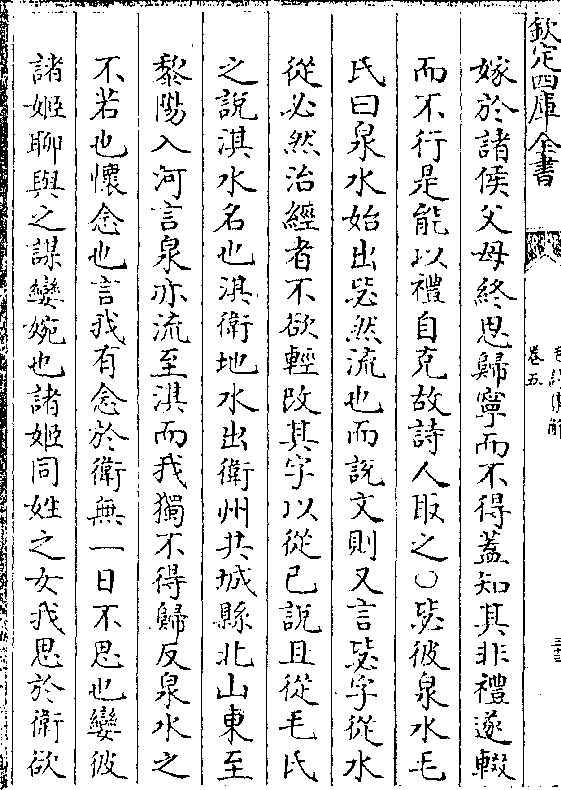 欽定四庫全書
卷五
嫁於諸侯父母終思歸寧而不得蓋知其非禮遂輟
而不行是能以禮自克故詩人取之○毖彼泉水毛
氏曰泉水始出毖然流也而說文則又言毖字從水
從必然治經者不欲輕改其字以從已說且從毛氏
之說淇水名也淇衛地水出衛州共城縣北山東至
黎陽入河言泉亦流至淇而我獨不得歸反泉水之
不若也懷念也言我有念於衛無一日不思也孌彼
諸姬聊與之謀孌婉也諸姬同姓之女我思於衛欲